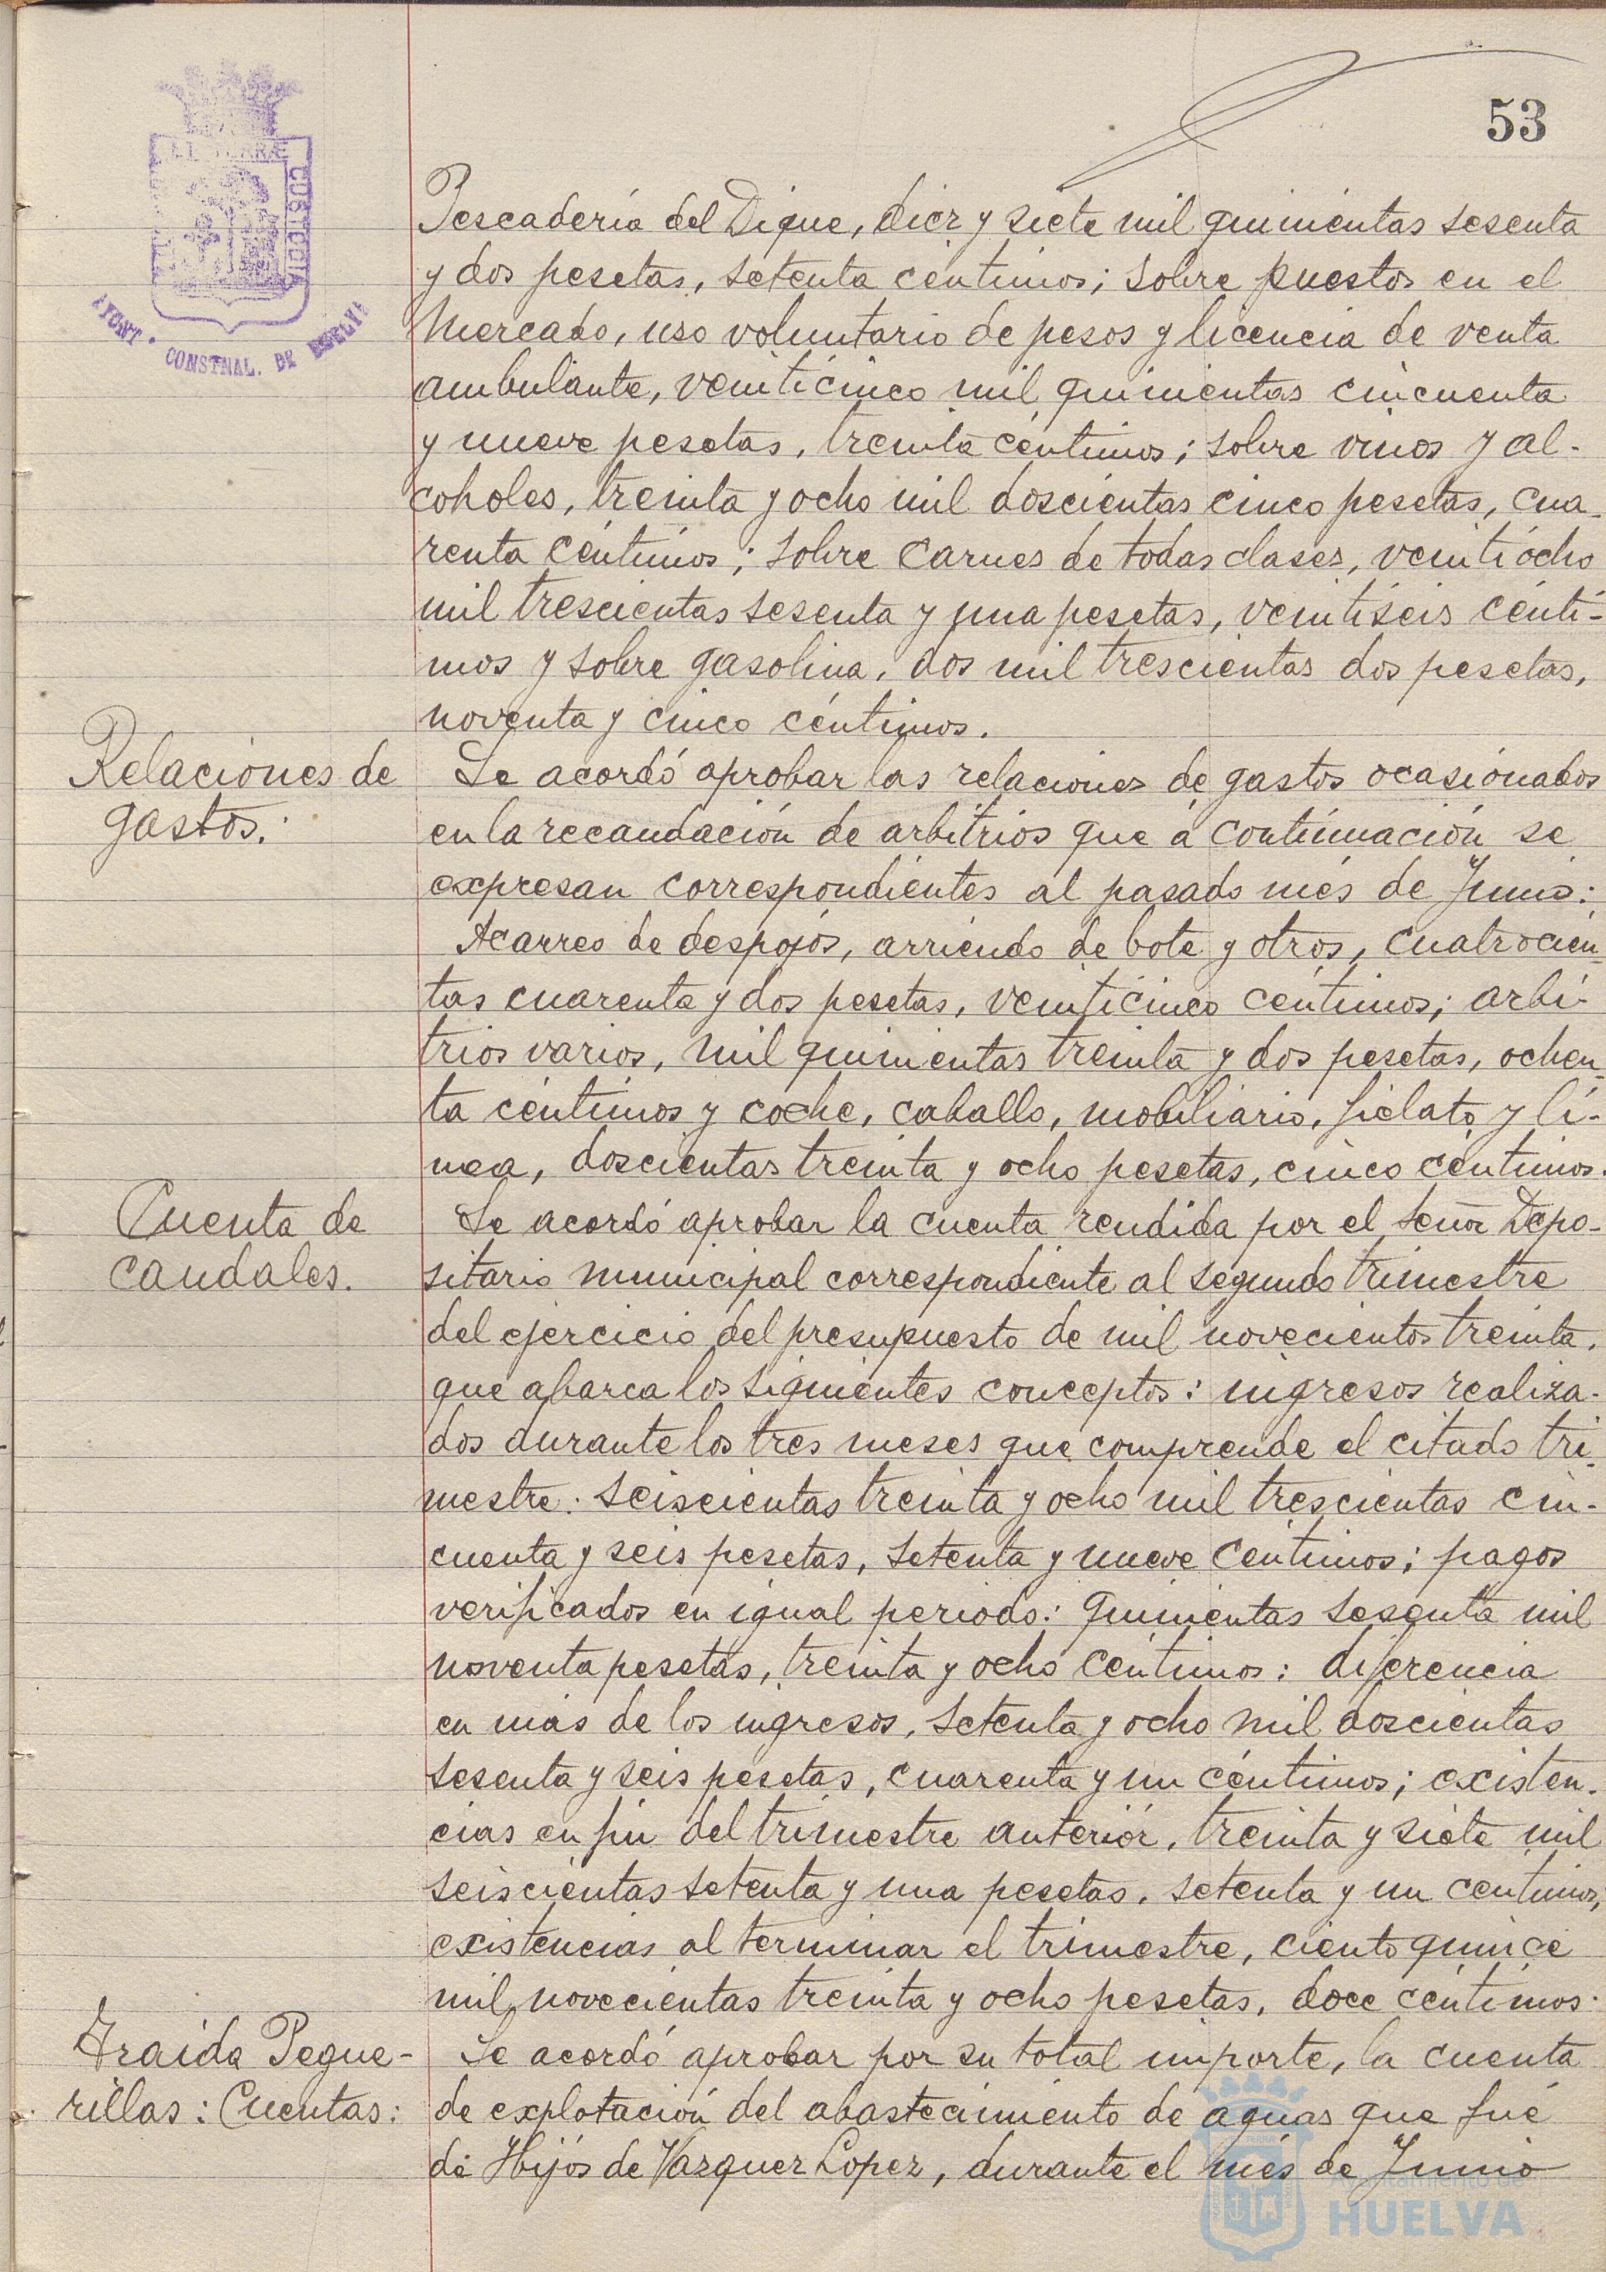 53
Pescadería del Dique, diez y siete mil quinientas sesenta
y dos pesetas, setenta centimos; sobre puestos en el
Mercado, uso voluntario de pesos y licencia de venta
ambulante, veinticinco mil quinientas cincuenta
y nueve pesetas, treinta céntimos; sobre vinos y al-
coholes, treinta y ocho mil doscientas cinco pesetas, cua-
renta céntimos; sobre carnes de todas clases, veintiocho
mil trescientas sesenta y una pesetas, veintiseis cénti-
mos y sobre gasolina, dos mil trescientas dos pesetas,
noventa y cinco céntimos.
Relaciones de
gastos:
Se acordó aprobar las relaciones de gastos ocasionados
en la recaudación de arbitrios que a continuación se
expresan correspondientes al pasado més de Junio:
Acarreo de despojos, arriendo de bote y otros, cuatrocien-
tas cuarenta y dos pesetas, veinticinco céntimos; arbi-
trios varios, mil quinientas treinta y dos pesetas, ochen-
ta céntimos y coche, caballo, mobiliario, fielato y lí-
nea, doscientas treinta y ocho pesetas, cinco céntimos.
Cuenta de
caudales.
Se acordó aprobar la cuenta rendida por el Señor Depo-
sitario municipal correspondiente al segundo trimestre
del ejercicio del presupuesto de mil novecientos treinta,
que abarca los siguientes conceptos: ingresos realiza-
dos durante los tres meses que comprende el citado tri-
mestre: seiscientas treinta y ocho mil trescientas cin-
cuenta y seis pesetas, setenta y nueve céntimos; pagos
verificados en igual periodo: quinientas sesenta mil
noventa pesetas, treinta y ocho céntimos: diferencia
en más de los ingresos, setenta y ocho mil doscientas
sesenta y seis pesetas, cuarenta y un céntimos; existen-
cias en fin del trimestre anterior, treinta y siete mil
seiscientas setenta y una pesetas, setenta y un centimos,
existencias al terminar el trimestre, ciento quince
mil novecientas treinta y ocho pesetas, doce céntimos.
Traida Pegue-
rillas: Cuentas:
Se acordó aprobar por su total importe, la cuenta
de explotación del abastecimiento de aguas que fué
de Hijos de Vazquez Lopez, durante el més de Junio
CUSTODIA
CONSTNAL. DE
Ayuntamiento de
HUELVA